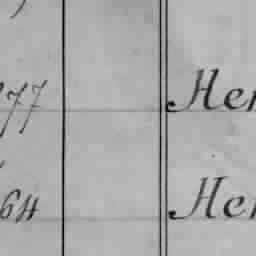 77 Her
64 Her